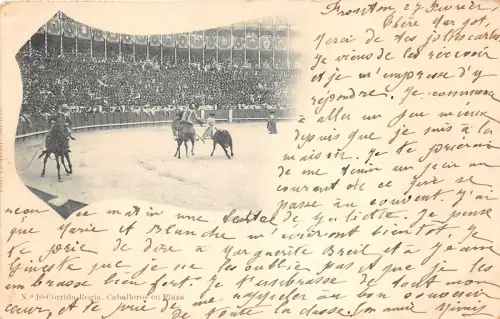 Fronton 27 Février
Chère Margot,
Merci de tes jolies cartes
Je viens de les recevoir
et je m'empresse d'y
répondre. Je commence
à aller un peu mieux
depuis que je suis à la
maison. Je te prierais
de me tenir un peu au
courant de ce qui se
passe au couvent. J'ai
reçu ce matin une lettre de Juliette. Je pense
que Marie et Blanche m'écriront bientôt. Je
te prie de dire à Marguerite Breil et à Jeanne
que je ne les oublie pas et que je les
embrasse bien fort. Je t'embrasse de tout mon
cœur et te prie de me rappeler au bon souvenir
de toute la classe. Ton amie
N.º 10-Corrida Regia. Caballeros en Plaza